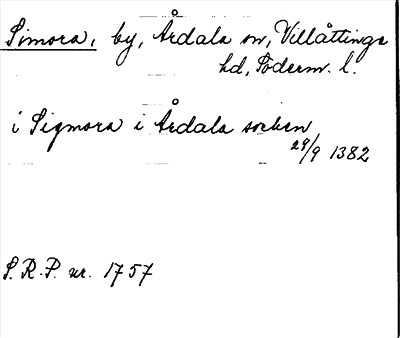 Simora, by, Årdala sn, Villåttinge
hd, Söderm. l.
i Sigmora i Årdala socken
29/9 1382
S.R.P. nr. 1757